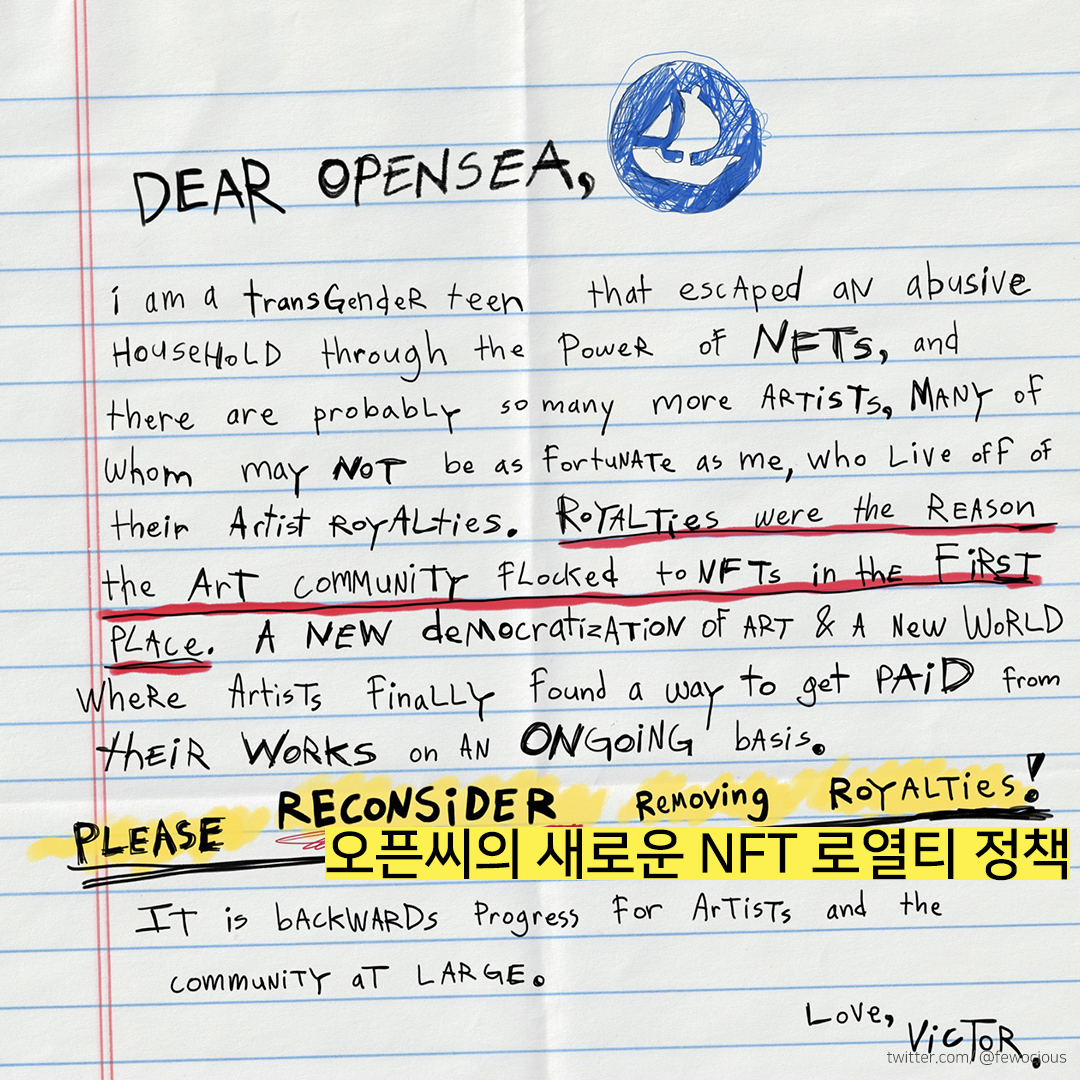 DEAR OPENSEA,
i am a transGendeR teen that escAped aN abusive
HouseHoLD through the PoweR of NFTs, and
there are probabLy so many more ARTiSTS, MANY of
whom may NOT be as fortuNATe as me, who Live off of
their Artist RoyALties. RoYALTies were the REASon
the ArT COMMUNiTY fLocked to NFTs in the FiRST
PLAce. A NEW deMocratizATiON of ART & A New WoRLD
wheRe ArtisTs finaLLy found a way to get PAiD from
theiR WORKS on AN ONGOiNG basis.
PLEASE RECONSiDER Removing RoYALTies!
오픈씨의 새로운 NFT 로열티 정책
IT is bACKWARDs Progress for ArTisTs and the
coMMuniTY aT LARGE.
Love,
VicToR.
twitter.com/ @fewocious